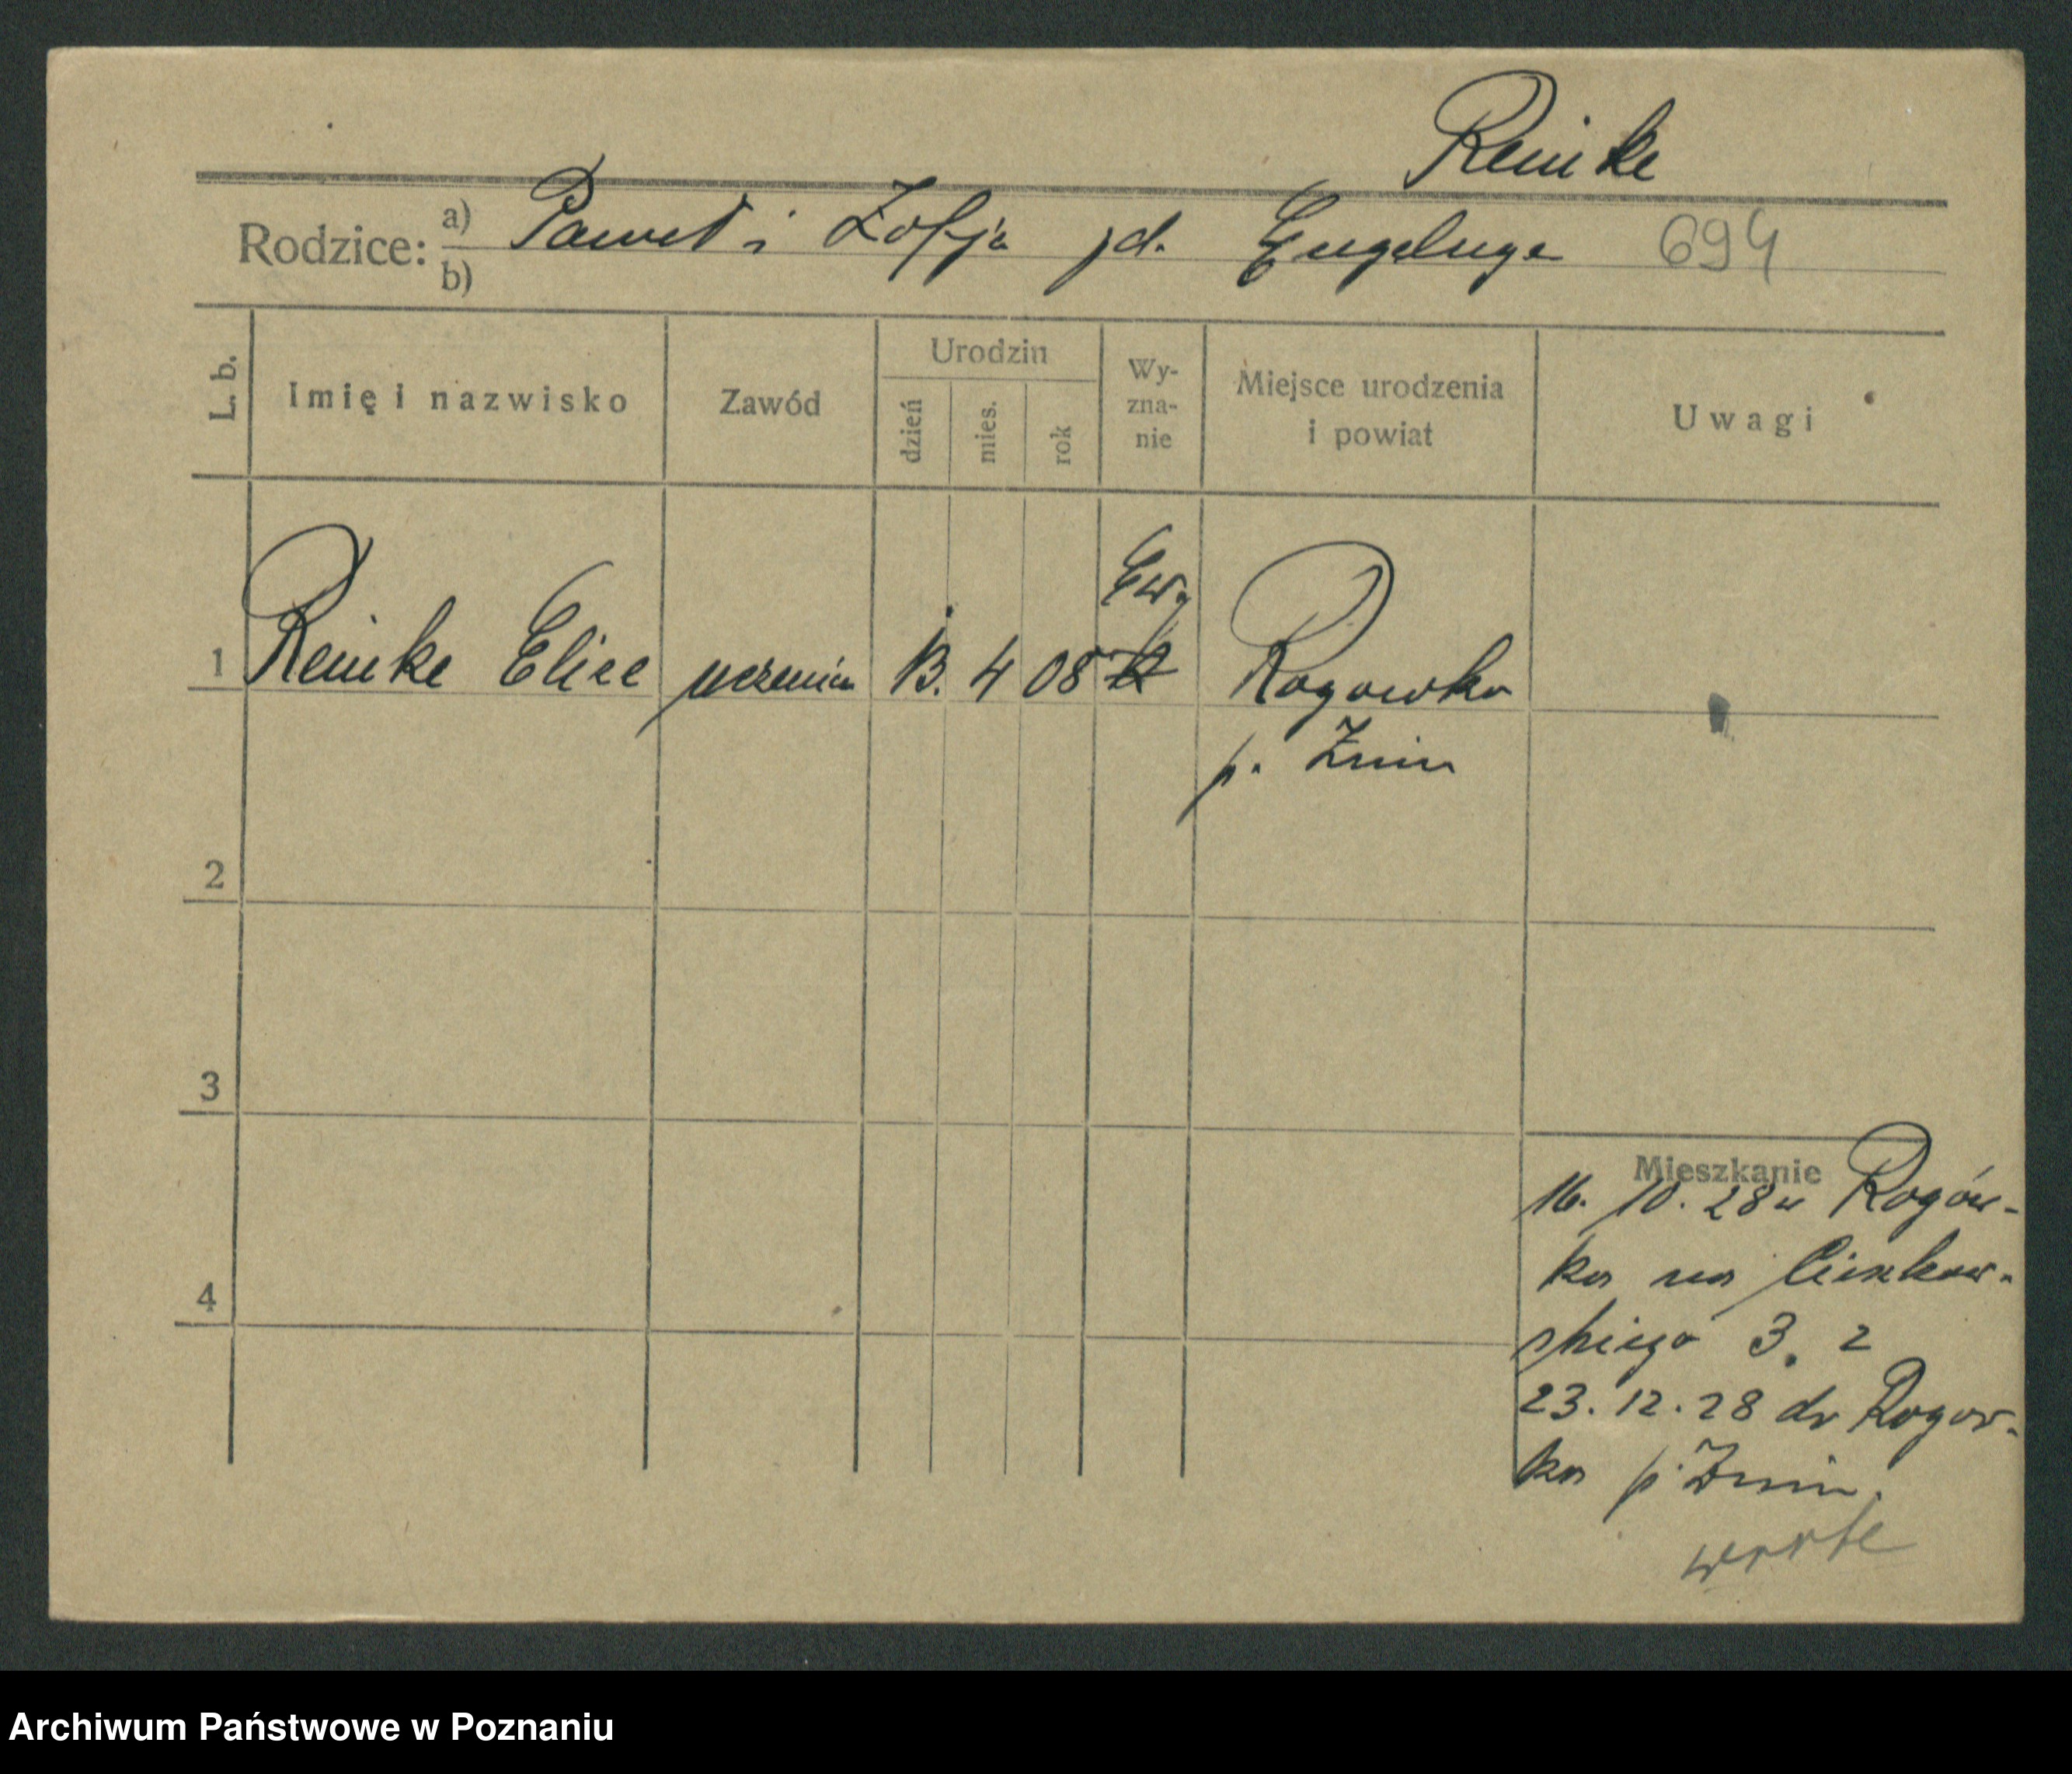 Reinke
Rodzice: a) Paweł i Zofja jd. Engelnge 694
b)
L. b. Imię i nazwisko Zawód Urodzin dzień mies. rok Wy-zna-nie Miejsce urodzenia i powiat Uwagi
Ew.
1 Reinke Elise uczenica 13. 4 08 k Rogowko
p. Żnin
2
3
4
Mieszkanie
16. 10. 28 z Rogów-
ka na Cieszkow-
skiego 3. 2
23. 12. 28 do Rogow-
ka p. Żnin.
Archiwum Państwowe w Poznaniu